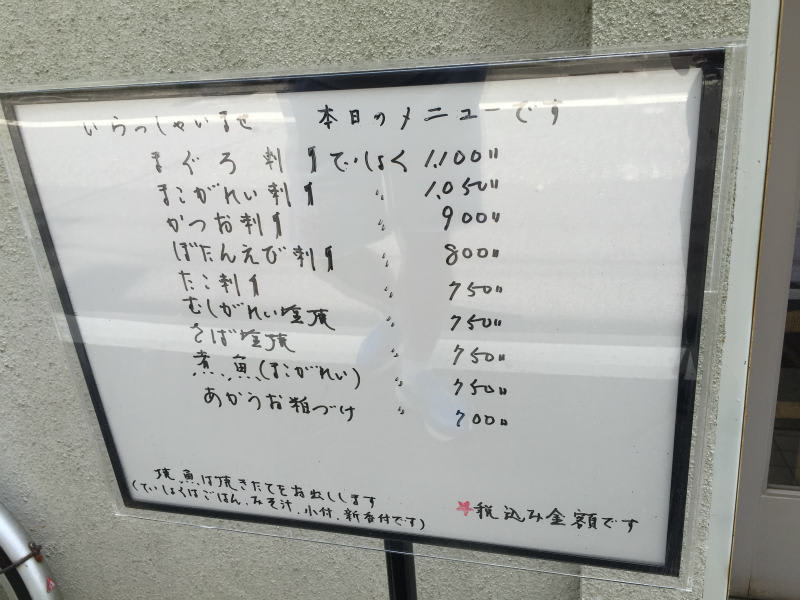 いらっしゃいませ 本日のメニューです
まぐろ刺身ていしょく 1,100〃
まこがれい刺身 〃 1,050〃
かつお刺身 〃 900〃
ぼたんえび刺身 〃 800〃
たこ刺身 〃 750〃
むしがれい塩焼 〃 750〃
さば塩焼 〃 750〃
煮魚(まこがれい) 〃 750〃
あかうお粕づけ 〃 700〃
焼魚は焼きたてをお出しします
(ていしょくはごはん、みそ汁、小付、新香付です)
税込み金額です